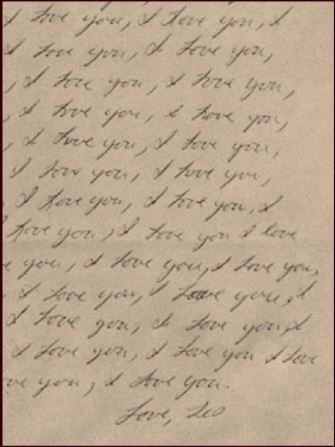 I love you, I love you, I
I love you, I love you,
, I love you, I love you,
, I love you, I love you,
, I love you, I love you,
I love you, I love you,
, I love you, I love you, I
love you, I love you I love
e you, I love you, I love you,
, I love you, I love you, I
I love you, I love you, I
, I love you, I love you I love
ve you, I love you.
Love, Leo